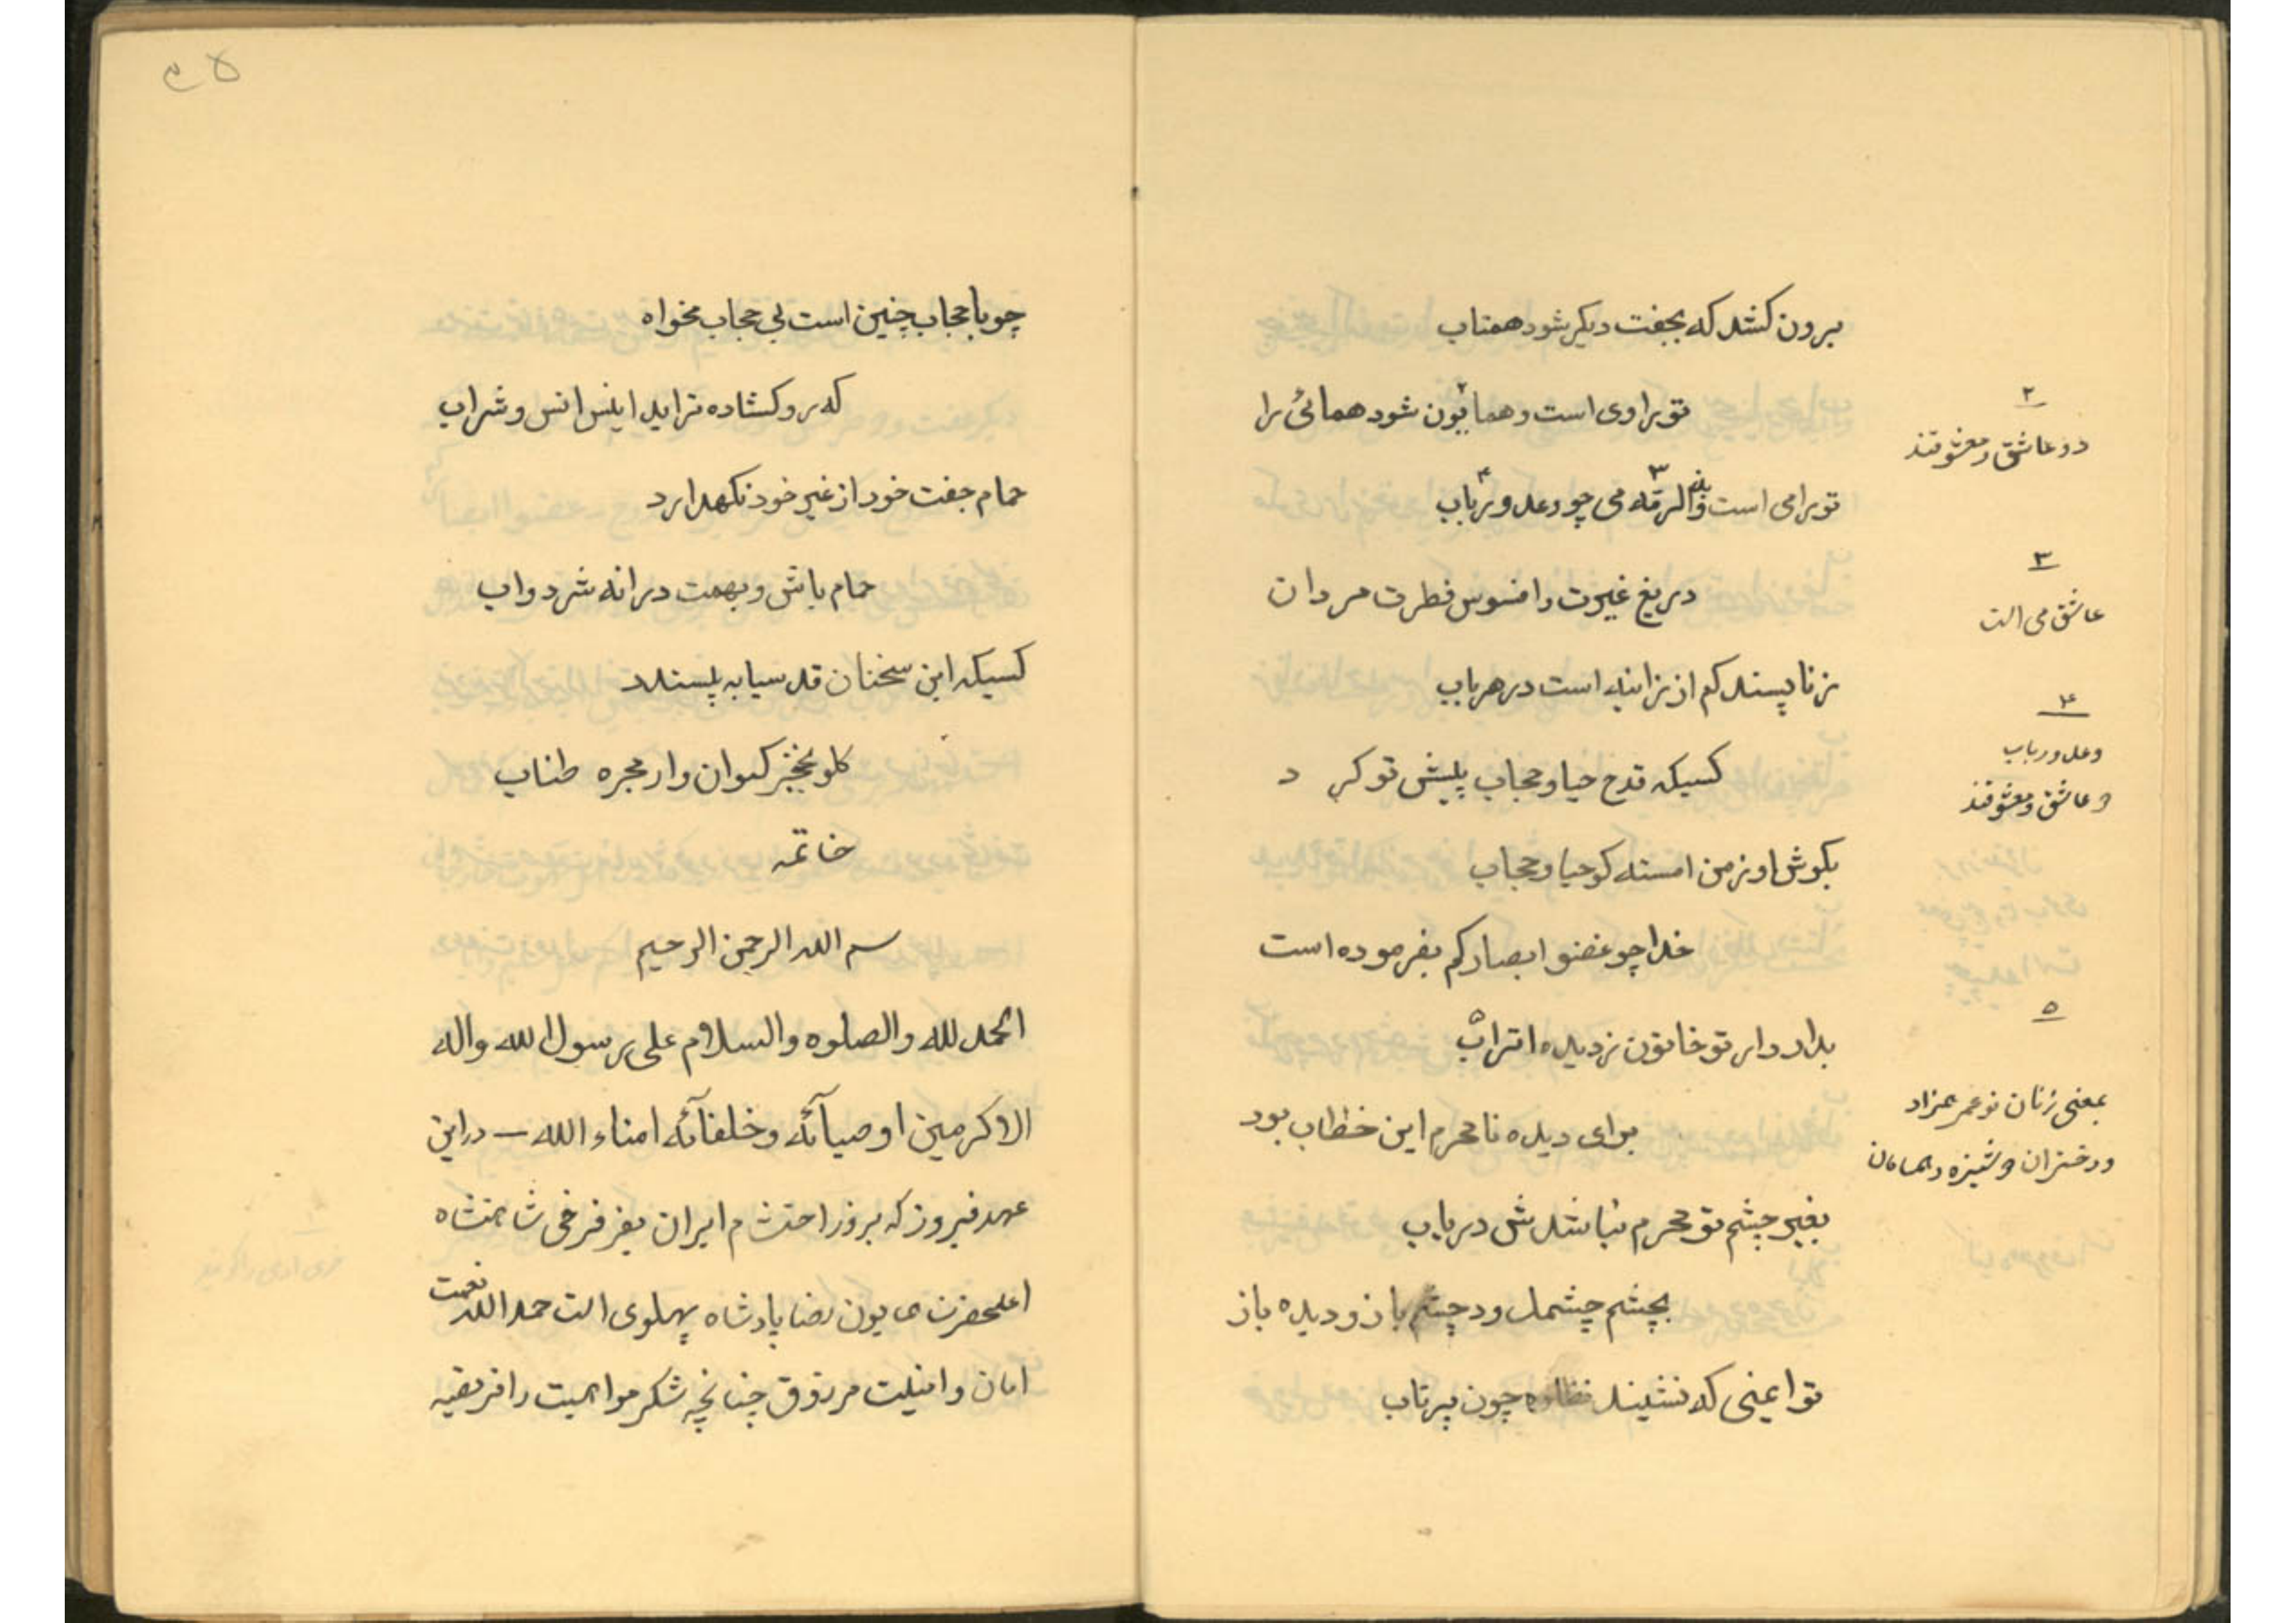 برون کشد که بجفت دیگر شود همتاب
تو براوی است و همایون شود همائی را
تو رامی است والرقه می چو دعد و رباب
دریغ غیرت وافسوس فطرت مردان
ز ناپسند کم از زانیه است در هر باب
کسیکه قدح حیا و حجاب پیش تو کرد
بگوش او ز من امسته کو حیا و حجاب
خدا چو غضوا ابصارکم بفرموده است
بدار دار تو خاتون ز دیده اتراب
برای دیده نامحرم این خطاب بود
بغیر چشم تو محرم نباشدش دریاب
بچشم چشمک و در چشم باز و دیده باز
تو ایمنی که نشیند نظاره چون پرتاب
۲
دو عاشق و معشوقند
۳
عاشق می است
۴
دعد و رباب
دو عاشق و معشوقند
۵
بمعنی زنان نو عمر همزاد
و دختران دوشیزه و همسالان
چو با حجاب چنین است بی حجاب مخواه
که رو گشاده تراید انیس انس و شراب
حمام جفت خود از غیر خود نگهدارد
حمام باش و بهمت درانه شر دواب
کسیکه این سخنان قد سیابه پسندد
کلو بخنجر کیوان وار مجره طناب
خاتمه
بسم الله الرحمن الرحیم
الحمد لله والصلوه والسلام علی رسول الله واله
الاکرمین اوصیآئه وخلفآئه امناء الله — در این
عهد فیروز که بروز احتشام ایران بفر فرخی شاهنشاه
اعلحضرت همایون رضا پادشاه پهلوی است حمدا لله نعمت
امان و امنیت مرزوق چنانچه شکر مواهبت